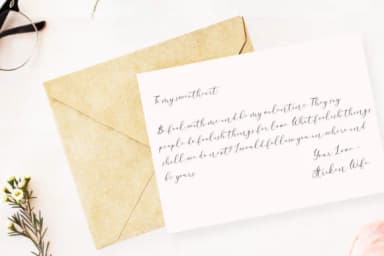 To my sweetheart,
Be fool with me and be my valentine. They say
people do foolish things for love. What foolish things
shall we do next? I would follow you in where and
be yours
Your Love -
Wife